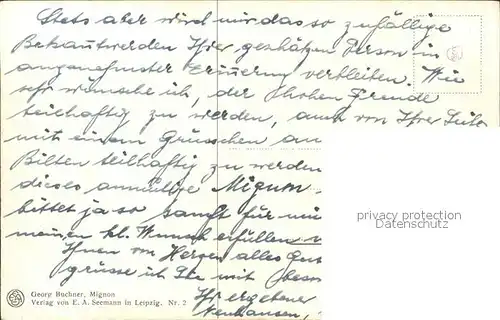 Stets aber wird mir das so zufällige
Bekanntwerden Ihrer geschätzen Person in
angenehmster Erinnerung verbleiben. Wie
sehr wünsche ich, der hohen Freude
teilhaftig zu werden, auch von Ihrer Seite
mit einem Grüsschen an
teilhaftig zu werden
dieses anmutige Mignon
bittet ja so sanft für mi
meinen kl. Wunsch erfüllen
Ihnen von Herzen alles Gut
grüsse ich Sie mit beson
Ihr ergebener
Neuhausen,
privacy protection
Datenschutz
Georg Buchner, Mignon
Verlag von E. A. Seemann in Leipzig. Nr. 2